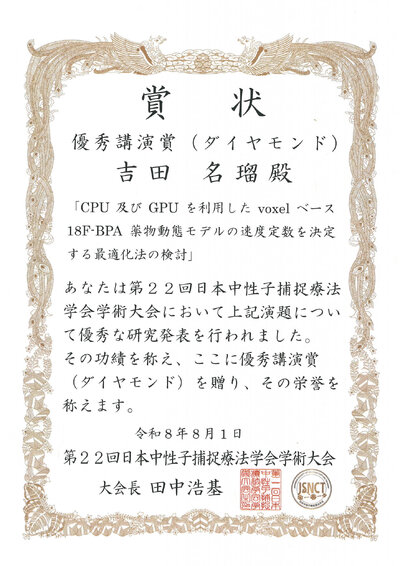 賞状
優秀講演賞（ダイヤモンド）
吉田 名瑠殿
「CPU 及び GPU を利用した voxel ベース
18F-BPA 薬物動態モデルの速度定数を決定
する最適化法の検討」
あなたは第２２回日本中性子捕捉療法
学会学術大会において上記演題につい
て優秀な研究発表を行われました。
その功績を称え、ここに優秀講演賞
（ダイヤモンド）を贈り、その栄誉を
称えます。
令和８年８月１日
第２２回日本中性子捕捉療法学会学術大会
大会長 田中浩基
JSNCT